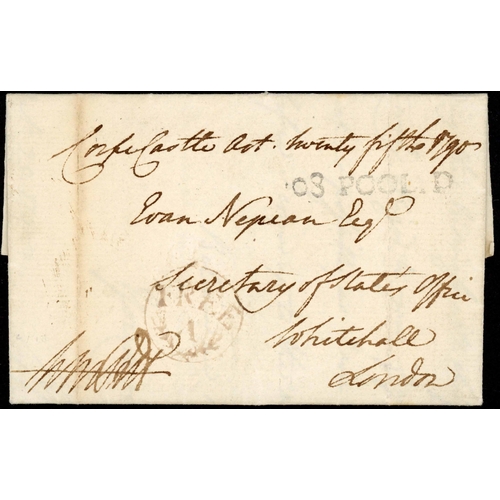 Corfe Castle Oct. twenty fifth 1790
108 POOL.D
Evan Nepean Esqr
Secretary of States Office
FREE
Whitehall
London